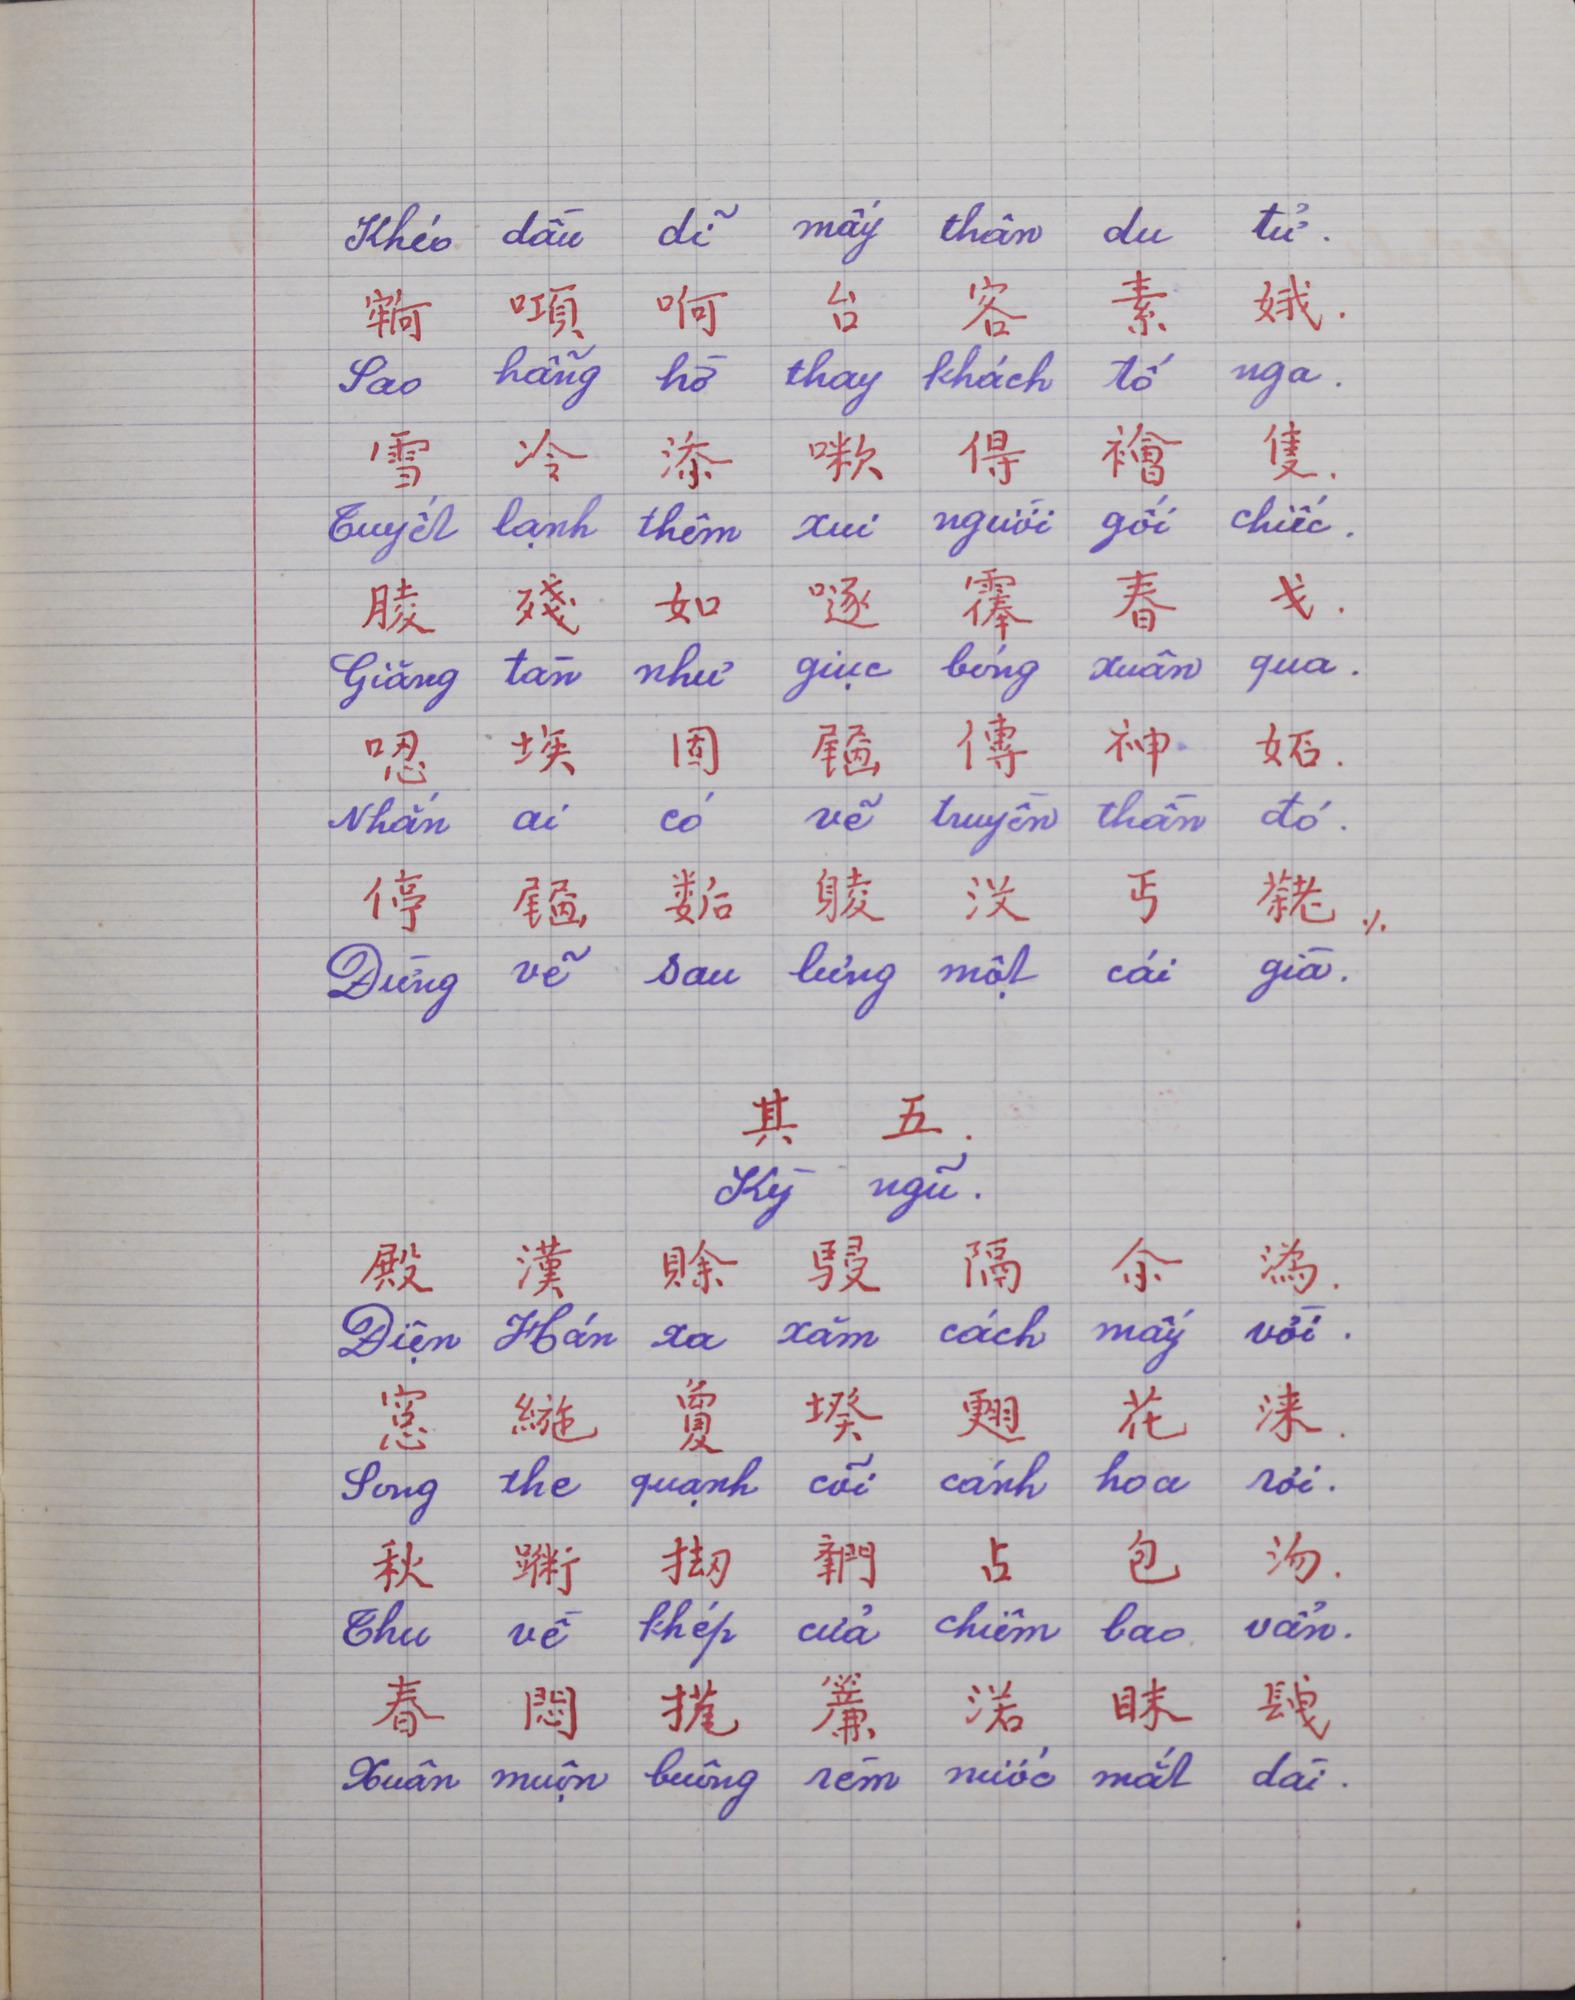 Khéo dầu dĩ mấy thân du tử.
台 容 素 娥.
Sao hẵng hờ thay khách tố nga.
雪 冷 添 得 隻.
Tuyết lạnh thêm xui người gối chiếc.
殘 如 春 戈.
Giăng tàn như giục bóng xuân qua.
埃 固 傳 神 妬.
Nhắn ai có vẽ truyền thần đó.
停 𦝄 没 丐
Đừng vẽ sau lưng một cái già.
其 五.
Kỳ ngũ.
殿 漢 賖 隔 尒 潙.
Điện Hán xa xăm cách mấy vời.
窓 絁 翅 花 淶.
Song the quạnh cõi cánh hoa rơi.
秋 占 包 沕.
Thu về khép cửa chiêm bao vẩn.
春 悶 簾 渃 眜
Xuân muộn buông rèm nước mắt dài.